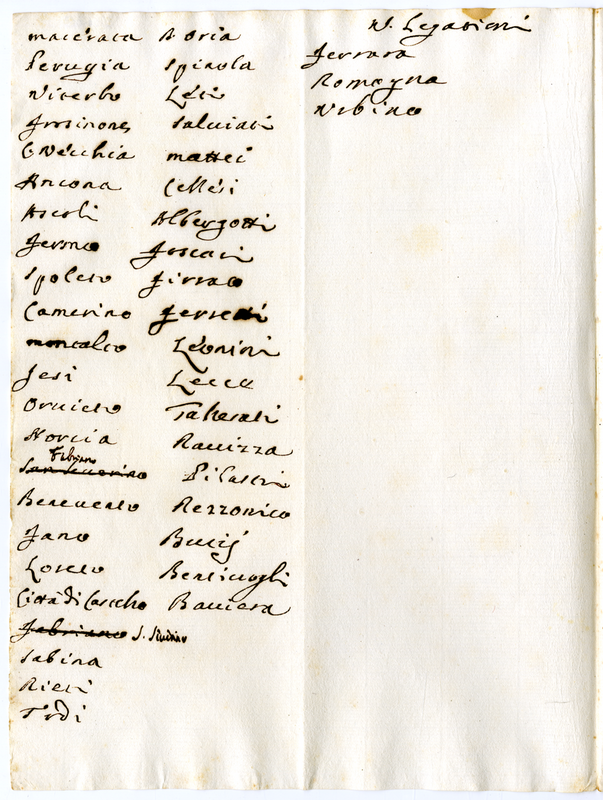 macerata Doria
Perugia Spinola
Viterbo Leti
Frosinones Salviati
CiVecchia mattei
Ancona Cellesi
Ascoli Albergotti
Fermo Foscari
Spoleto Firrao
Camerino Ferretti
montalto Leonini
Jesi Lecce
Orvieto Taliesati
Norcia Ravizza
Fabriano
San Severino Pilastri
Benevento Rezzonico
Fano Bussi
Loreto Bentivogli
Città di Castello Baviera
Fabriano S. Severino
Sabina
Rieti
Todi
N. Legationi
Ferrara
Romagna
Urbino